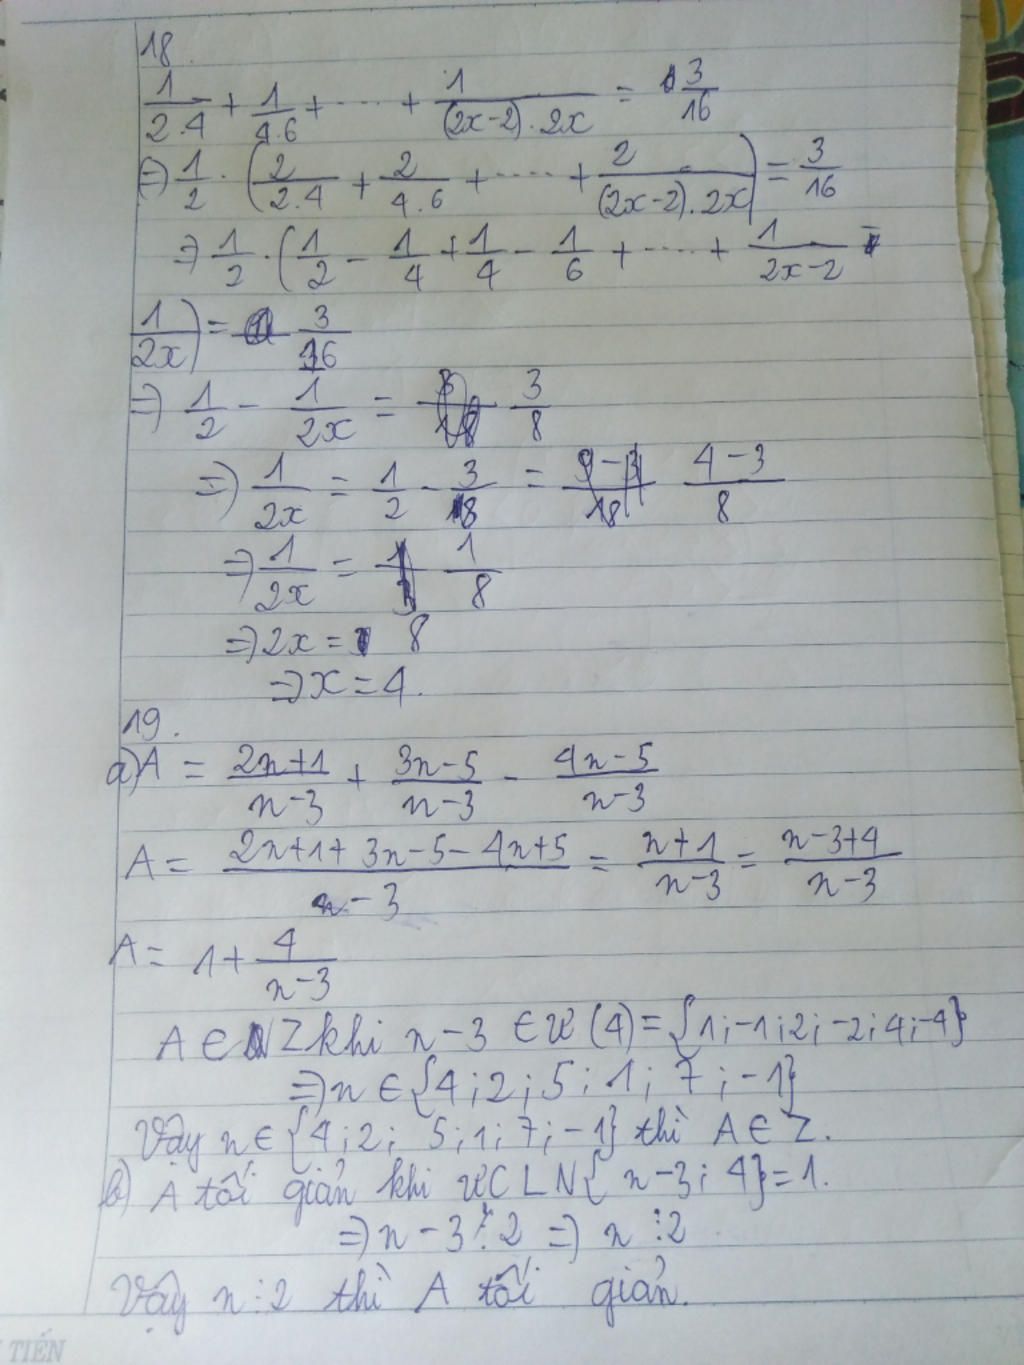 18.
1/2.4 + 1/4.6 + ..... + 1/(2x-2).2x = 3/16
=> 1/2 . (2/2.4 + 2/4.6 + ..... + 2/(2x-2).2x) = 3/16
=> 1/2 . (1/2 - 1/4 + 1/4 - 1/6 + ..... + 1/2x-2 -
1/2x) = 3/16
=> 1/2 - 1/2x = 3/8
=> 1/2x = 1/2 - 3/8 = 4-3/8
=> 1/2x = 1/8
=> 2x = 8
=> x = 4.
19.
a) A = 2n+1/n-3 + 3n-5/n-3 - 4n-5/n-3
A = 2n+1+3n-5-4n+5/n-3 = n+1/n-3 = n-3+4/n-3
A = 1 + 4/n-3
A ∈ Z khi n-3 ∈ Ư(4) = {1;-1;2;-2;4;-4}
=> n ∈ {4;2;5;1;7;-1}
Vậy n ∈ {4;2;5;1;7;-1} thì A ∈ Z.
b) A tối giản khi ƯCLN{n-3;4}=1.
=> n-3 ⋮̸ 2 => n ⋮ 2
Vậy n ⋮ 2 thì A tối giản.
TIẾN